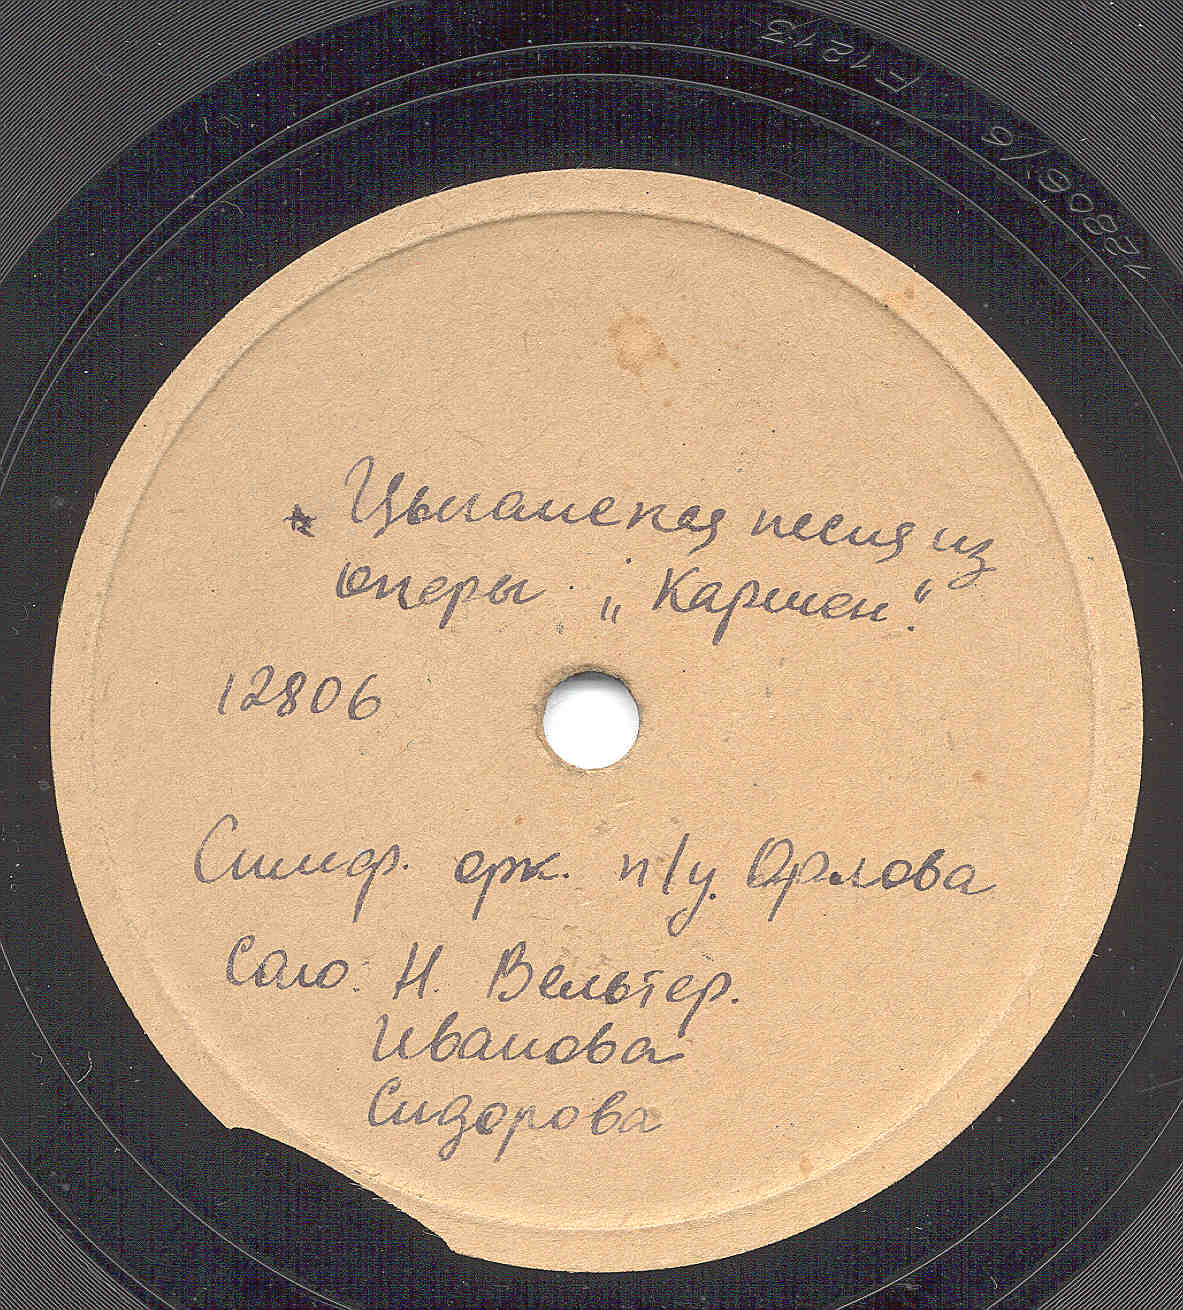 Цыганская песня из
оперы „Кармен“.
12806
Симф. орк. п/у. Орлова
Соло: Н. Вельтер.
Иванова
Сидорова
F 1213
12806/6